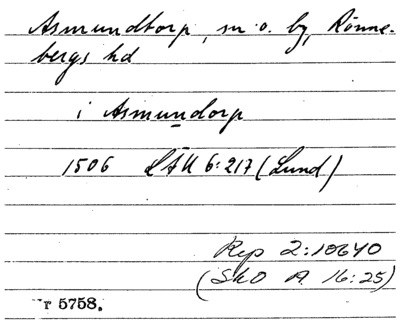 Asmundtorp, sn o. by, Rönne-
bergs hd
i Asmundorp
1506 LÄU 6:217 (Lund)
Rep 2:10640
(SkO A. 16:25)
r 5758.